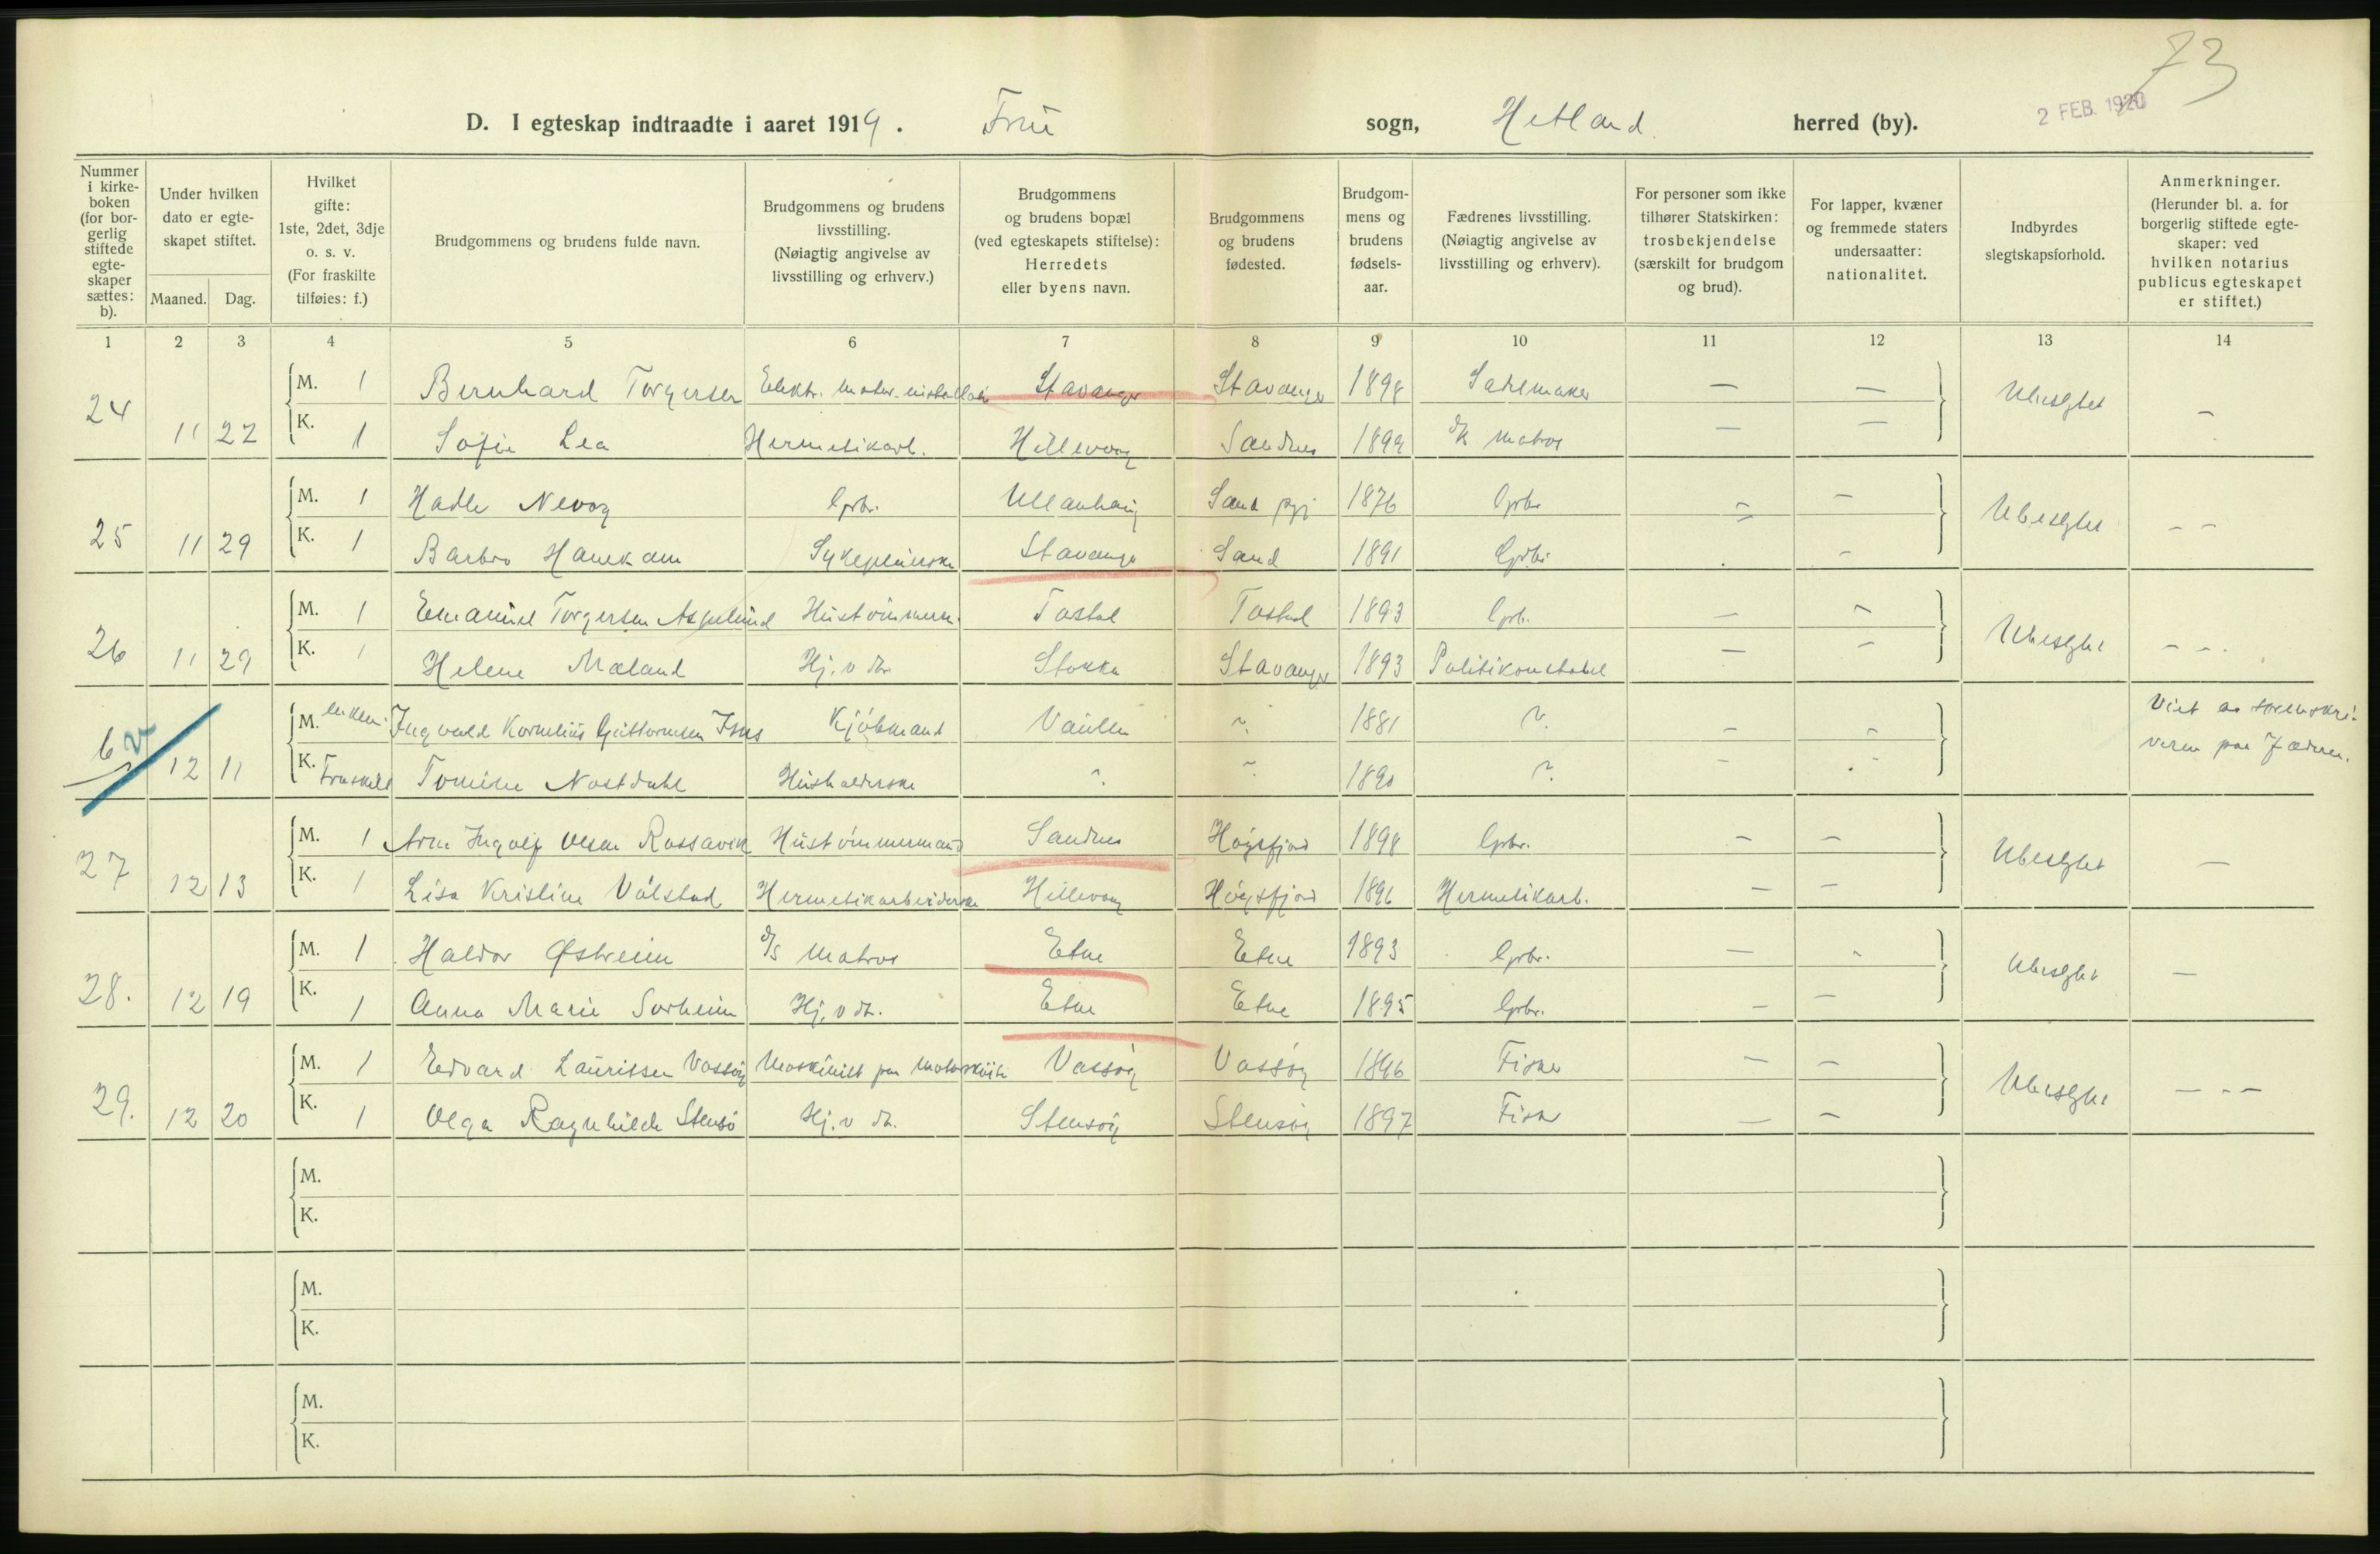 73
2 FEB. 1920
D. I egteskap indtraadte i aaret 1919. Frue sogn, Hetland herred (by).
Nummer i kirkeboken (for borgerlig stiftede egteskaper sættes: b).
Under hvilken dato er egteskapet stiftet.
Maaned. Dag.
Hvilket gifte: 1ste, 2det, 3dje o. s. v. (For fraskilte tilføies: f.)
Brudgommens og brudens fulde navn.
Brudgommens og brudens livsstilling. (Nøiagtig angivelse av livsstilling og erhverv.)
Brudgommens og brudens bopæl (ved egteskapets stiftelse): Herredets eller byens navn.
Brudgommens og brudens fødested.
Brudgommens og brudens fødselsaar.
Fædrenes livsstilling. (Nøiagtig angivelse av livsstilling og erhverv).
For personer som ikke tilhører Statskirken: trosbekjendelse (særskilt for brudgom og brud).
For lapper, kvæner og fremmede staters undersaatter: nationalitet.
Indbyrdes slegtskapsforhold.
Anmerkninger. (Herunder bl. a. for borgerlig stiftede egteskaper: ved hvilken notarius publicus egteskapet er stiftet.)
1 2 3 4 5 6 7 8 9 10 11 12 13 14
24 M. 1 Bernhard Torgersen Elektr. Stavanger Stavanger 1898 Sadelmaker — — Ubeslgtet —
11 22 K. 1 Sofie Lea Hermetikarb. Hillevaag Sandnes 1899 matros — —
25 M. 1 Hadle Nevøy Gprbr. Ullanhaug Sand 1876 Gprbr — — Ubeslgtet – –
11 29 K. 1 Barbro Havrkam Sykepleierske Stavanger Sand 1891 Gprbr –
26 M. 1 Emanuel Torgersen Aspelund Hustømmerm. Tastad Tastad 1893 Gprb. — – Ubeslgtet – – .
11 29 K. 1 Helene Mæland Hj. v dr. Stokka Stavanger 1893 Politikonstabel — –
6 2 M. enkem. Ingvald Kornelius Guttormsen Fuas Kjøbmand Vaulen ? 1881 ? – – Viet av sorenskri-
12 11 K. Fraskilt Tomine Nostdahl Husholderske ? ? 1890 ? – – veren paa Jæderen.
27 M. 1 Arne Ingolf Olsen Rossavik Hustømmermand Sandnes Høgsfjord 1898 Gprbr. – – Ubeslgtet —
12 13 K. 1 Lisa Kristine Vølstad Hermetikarbeiderske Hillevaag Høgsfjord 1896 Hermetikarb. — –
28. M. 1 Haldor Østreim D/S Matros Etne Etne 1893 Gprbr. — - Ubeslgtet —
12 19 K. 1 Anna Marie Sørheim Hj. v dr. Etne Etne 1895 Gprbr. — –
29. M. 1 Edvard Lauritsen Vassøy Maskinist paa Motorskøite Vassøy Vassøy 1896 Fisker — – Ubeslgtet – – –
12 20 K. 1 Olga Ragnhilde Stensø Hj. v dr. Stensøy Stensøy 1897 Fisker — –
M.
K.
M.
K.
M.
K.